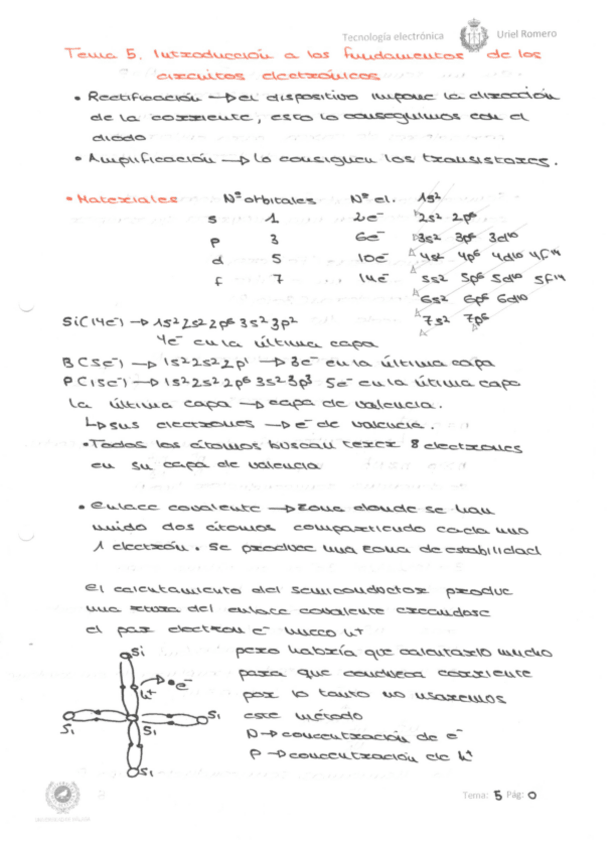 Tecnología electrónica
Uriel Romero
Tema 5. Introducción a los fundamentos de los
circuitos electrónicos
• Rectificación → el dispositivo impone la dirección
de la corriente, esto lo conseguimos con el
diodo
• Amplificación → lo consiguen los transistores.
• Materiales Nº orbitales Nº el. 1s²
s 1 2e⁻ 2s² 2p⁶
p 3 6e⁻ 3s² 3p⁶ 3d¹⁰
d 5 10e⁻ 4s² 4p⁶ 4d¹⁰ 4f¹⁴
f 7 14e⁻ 5s² 5p⁶ 5d¹⁰ 5f¹⁴
6s² 6p⁶ 6d¹⁰
7s² 7p⁶
Si(14e⁻) → 1s² 2s² 2p⁶ 3s² 3p²
4e⁻ en la última capa
B(5e⁻) → 1s² 2s² 2p¹ → 3e⁻ en la última capa
P(15e⁻) → 1s² 2s² 2p⁶ 3s² 3p³ 5e⁻ en la útima capa
la última capa → capa de valencia.
↳ sus electrones → e⁻ de valencia.
• Todos los átomos buscan tener 8 electrones
en su capa de valencia
• enlace covalente → zona donde se han
unido dos átomos compartiendo cada uno
1 electrón. Se produce una zona de estabilidad
el calentamiento del semiconductor produce
una rotura del enlace covalente creandose
el par electron e⁻ hueco h⁺
pero habría que calentarlo mucho
para que conduzca corriente
por lo tanto no usaremos
este método
n → concentración de e⁻
p → concentración de h⁺
Si
h⁺
e⁻
Si
Si
Si
Si
Tema: 5 Pág: 0